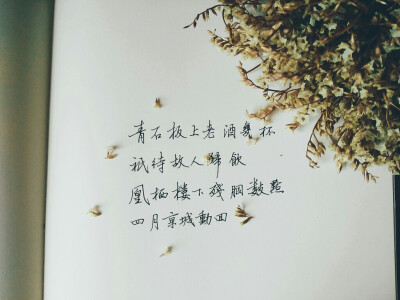 青石板上老酒幾杯
祇待故人歸飲
凰栖樓下殘胭數點
四月京城動